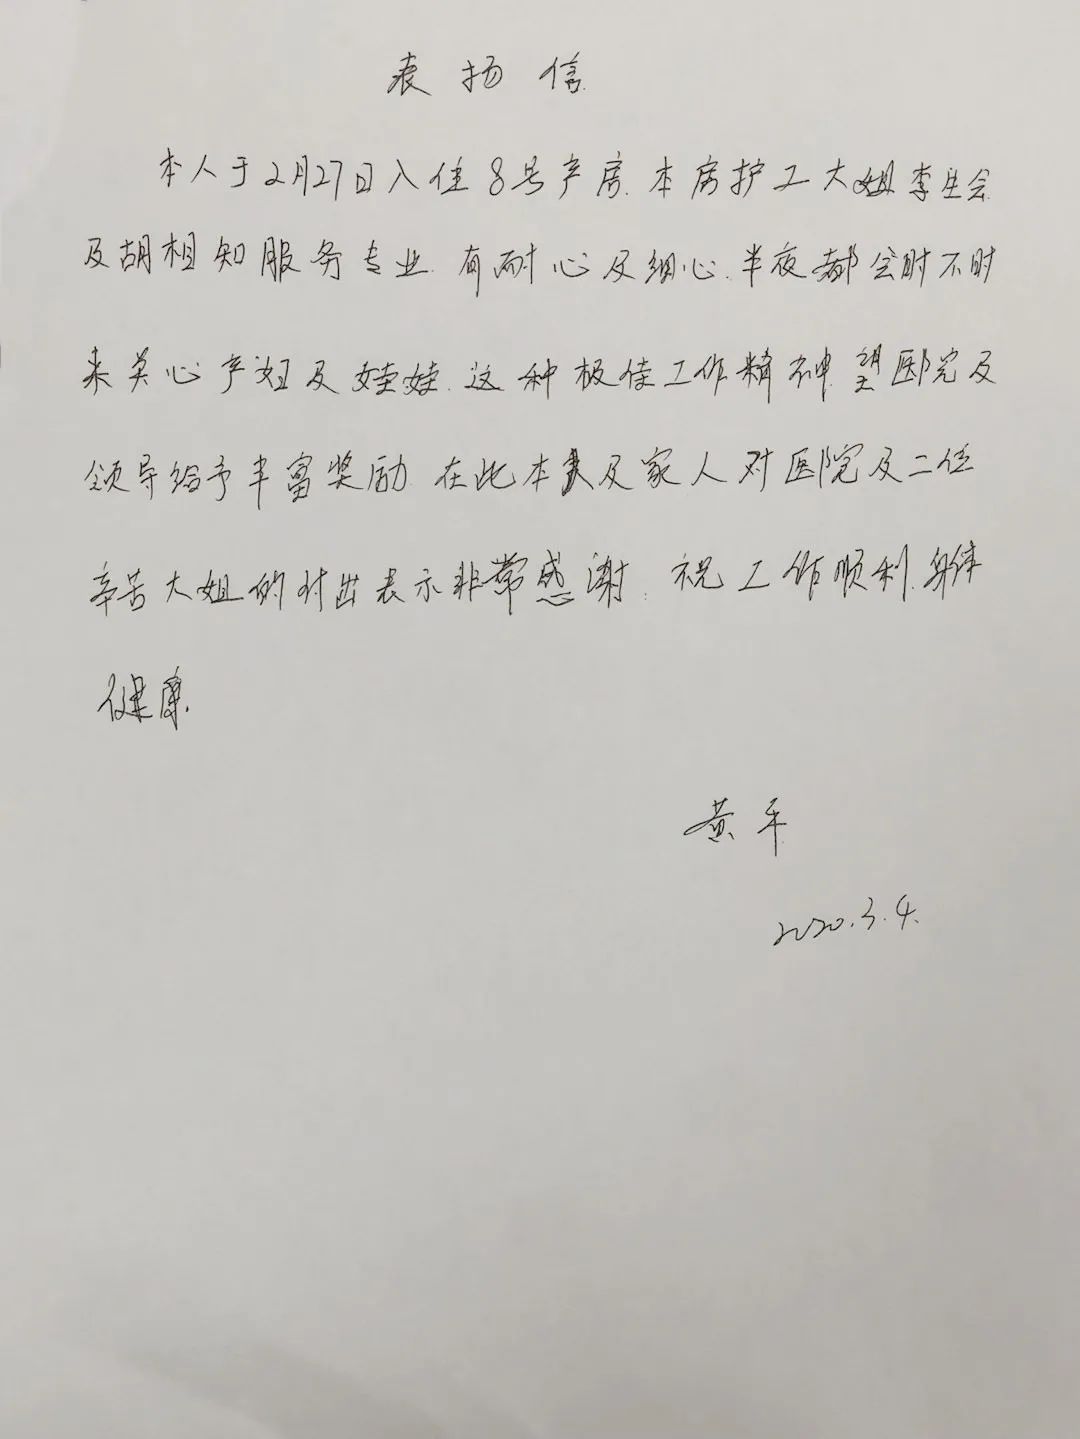 表扬信
本人于2月27日入住8号产房.本房护工大姐李生会
及胡相知服务专业.有耐心及细心.半夜都会时不时
来关心产妇及娃娃.这种极佳工作精神.望医院及
领导给予丰富奖励.在此本人及家人对医院及二位
辛苦大姐的付出表示非常感谢.祝工作顺利.身体
健康.
黄平
2020.3.4.